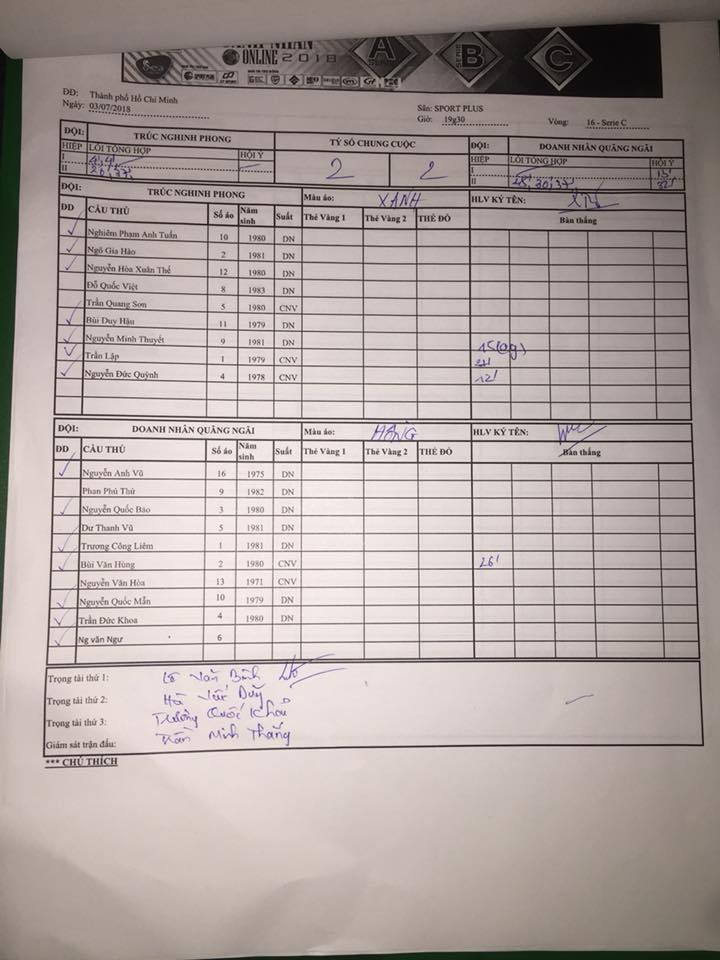 ONLINE 2018
A
B
C
ĐĐ: Thành phố Hồ Chí Minh
Ngày: 03/07/2018
Sân: SPORT PLUS
Giờ: 19g30 Vòng: 16 - Serie C
ĐỘI: TRÚC NGHINH PHONG TỶ SỐ CHUNG CUỘC ĐỘI: DOANH NHÂN QUÃNG NGÃI
HIỆP LỖI TỔNG HỢP HỘI Ý 2 2 HIỆP LỖI TỔNG HỢP HỘI Ý
I I 13'
II II 30, 37 32'
ĐỘI: TRÚC NGHINH PHONG Màu áo: XANH HLV KÝ TÊN:
DD CẦU THỦ Số áo Năm sinh Suất Thẻ Vàng 1 Thẻ Vàng 2 THẺ ĐỎ Bàn thắng
Nghiêm Phạm Anh Tuấn 10 1980 DN
Ngô Gia Hào 2 1981 DN
Nguyễn Hòa Xuân Thế 12 1980 DN
Đỗ Quốc Việt 8 1983 DN
Trần Quang Sơn 5 1980 CNV
Bùi Duy Hậu 11 1979 DN
Nguyễn Minh Thuyết 9 1981 DN 15(og)
Trần Lập 1 1979 CNV
Nguyễn Đức Quỳnh 4 1978 CNV 12'
ĐỘI: DOANH NHÂN QUÃNG NGÃI Màu áo: HLV KÝ TÊN:
DD CẦU THỦ Số áo Năm sinh Suất Thẻ Vàng 1 Thẻ Vàng 2 THẺ ĐỎ Bàn thắng
Nguyễn Anh Vũ 16 1975 DN
Phan Phú Thứ 9 1982 DN
Nguyễn Quốc Bảo 3 1980 DN
Dư Thanh Vũ 5 1981 DN
Trương Công Liêm 1 1981 DN
Bùi Văn Hùng 2 1980 CNV 26'
Nguyễn Văn Hòa 13 1971 CNV
Nguyễn Quốc Mẫn 10 1979 DN
Trần Đức Khoa 4 1980 DN
Ng văn Ngư 6
Trọng tài thứ 1: Lê Văn Bình
Trọng tài thứ 2: Hà Duy
Trọng tài thứ 3: Trương Quốc
Giám sát trận đấu: Trần Minh Thắng
*** CHÚ THÍCH